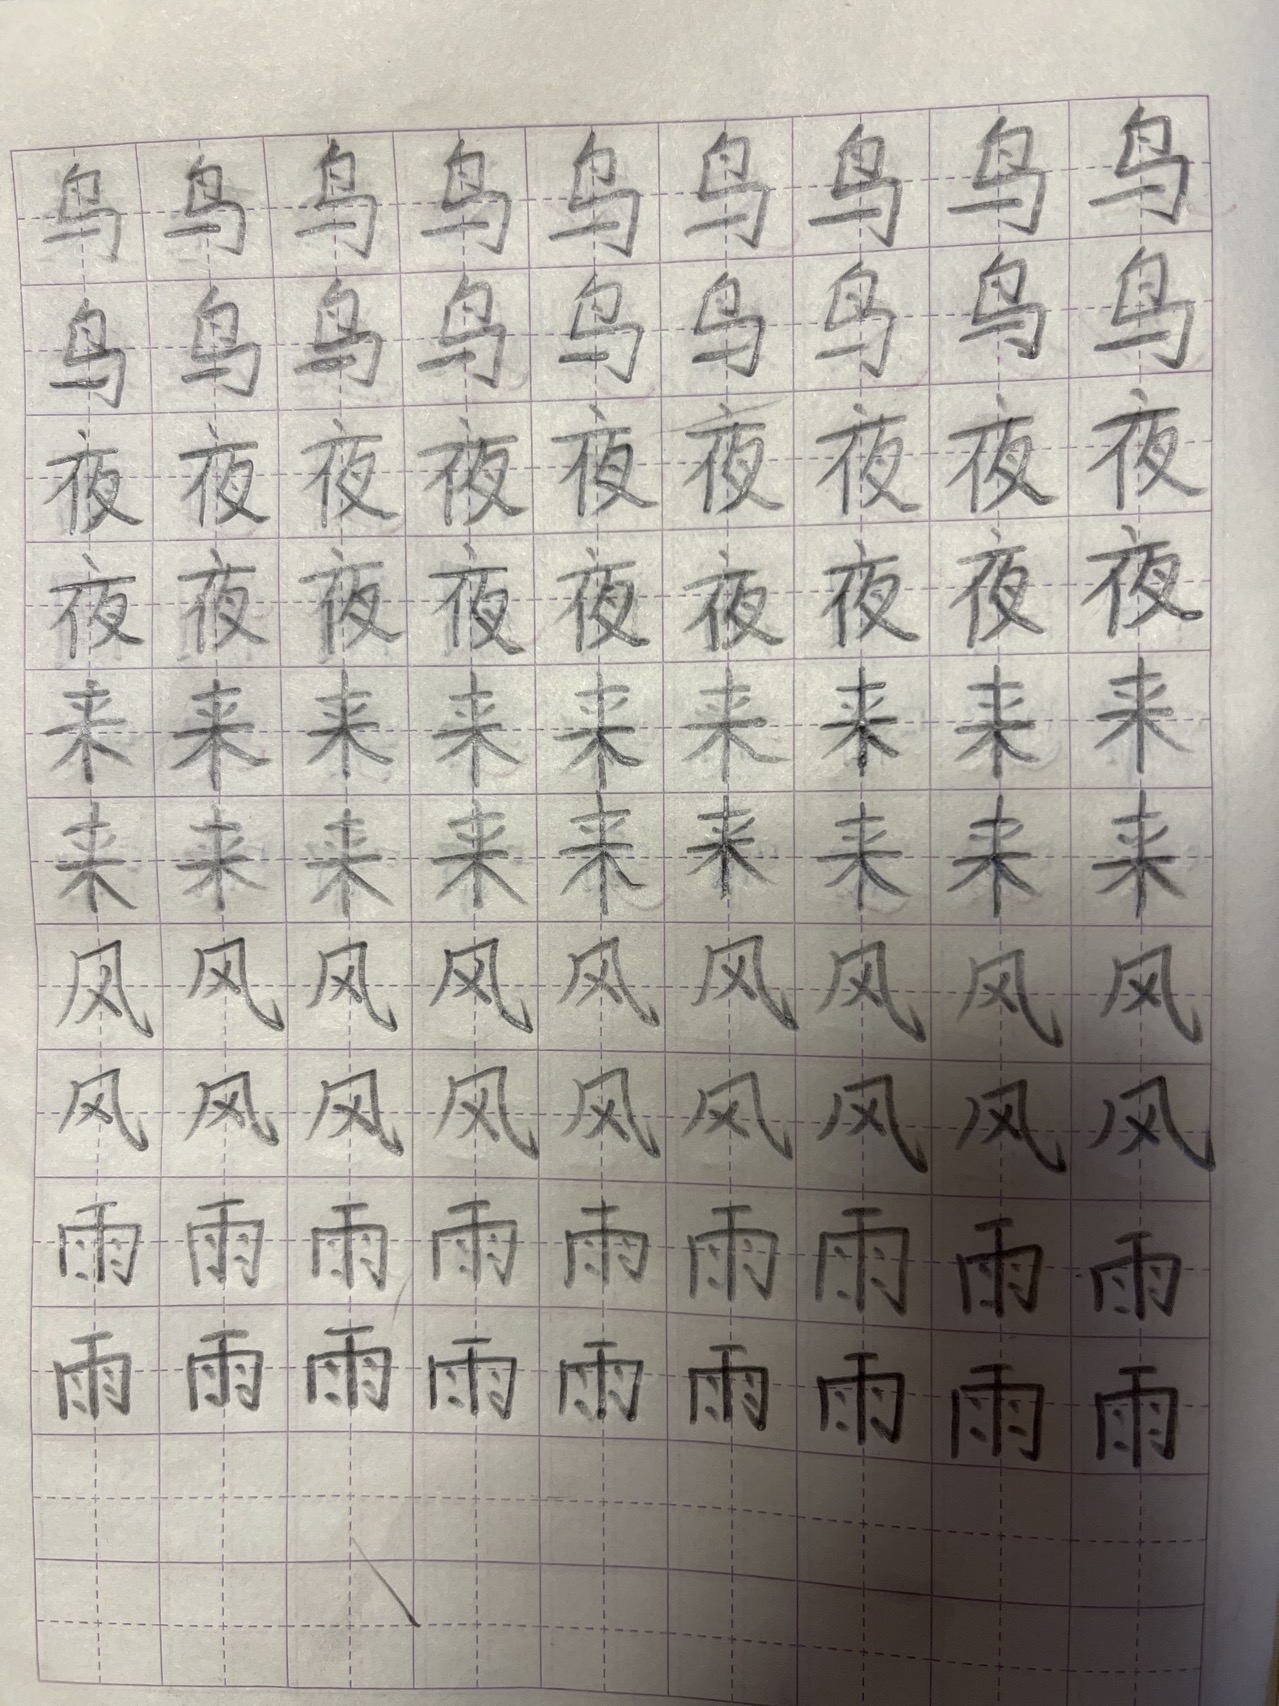 鸟鸟鸟鸟鸟鸟鸟鸟鸟
鸟鸟鸟鸟鸟鸟鸟鸟鸟
夜夜夜夜夜夜夜夜夜
夜夜夜夜夜夜夜夜夜
来来来来来来来来来
来来来来来来来来来
风风风风风风风风风
风风风风风风风风风
雨雨雨雨雨雨雨雨雨
雨雨雨雨雨雨雨雨雨